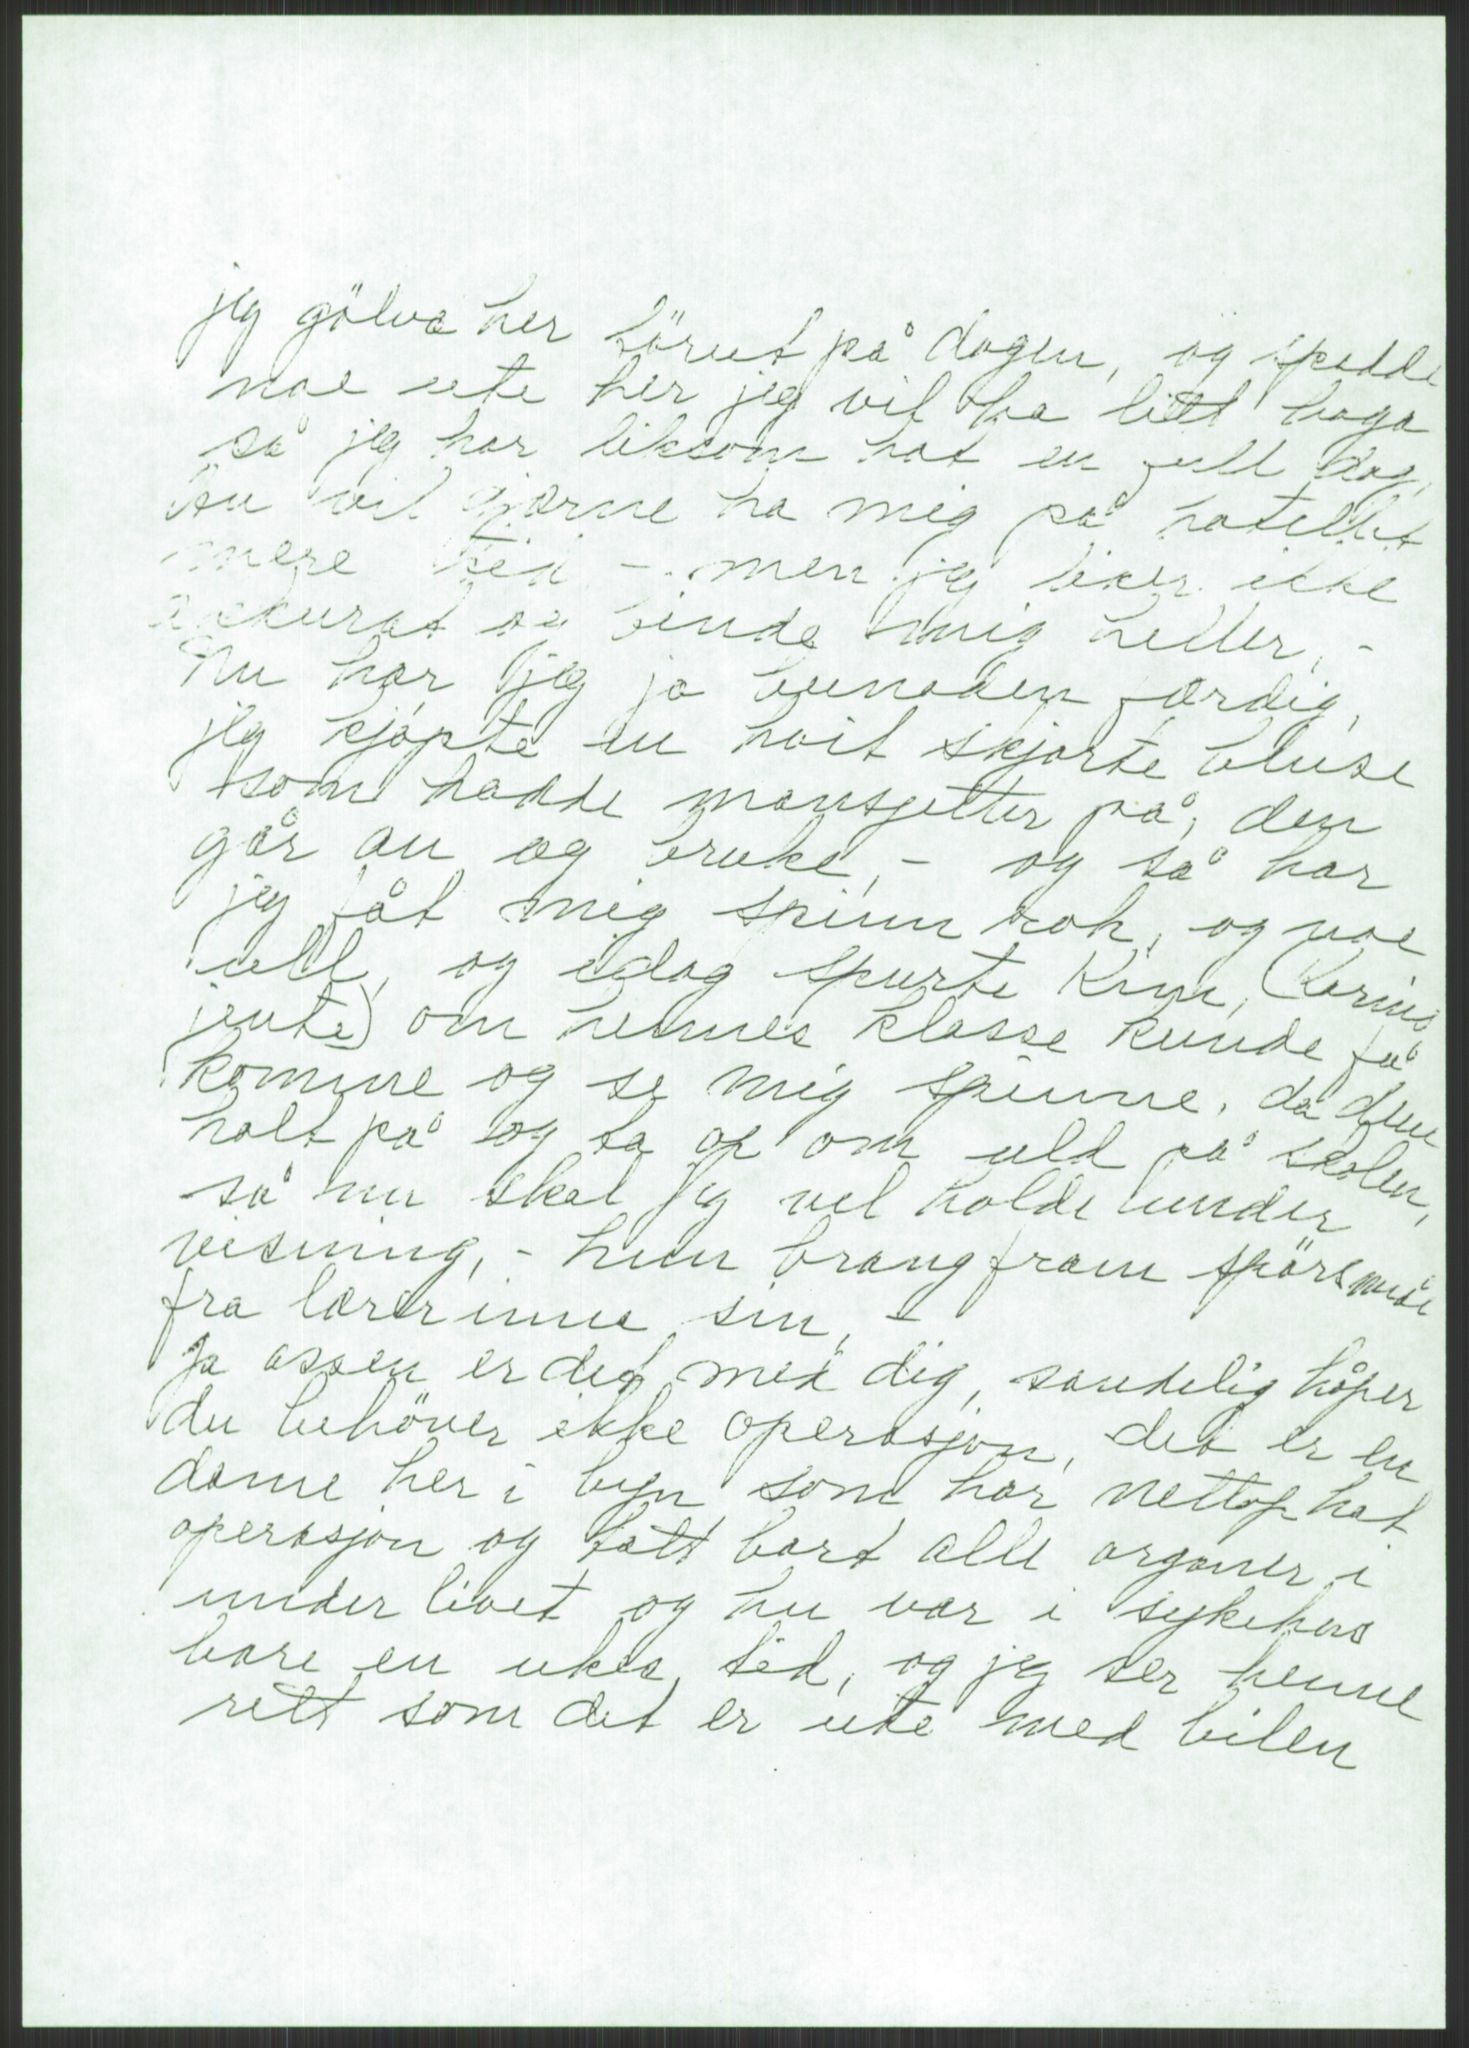 jeg gölva her törut på dagen, og spadde
noe ute her jeg vil ha litt haga
så jeg har liksom hat en full dag,
vil gjærne ha mig på hotellet
mere tid - men jeg liker ikke
akkurat og binde mig heller, -
Nu har jeg jo bunaden færdig,
jeg kjøpte en hvit skjorte bluse
som hadde mansjetter på, den
går an og bruke, - og så har
jeg fåt mig spinn rok, og noe
ull, og idag spurte Kim, (Karins
jente) om hennes klasse kunde få
komme og se mig spinne, da dem
holt på og ta op om uld på skolen,
så nu skal jeg vel holde under
visning, - hun brang fram spörsmål
fra lærerinne sin, -
Ja assen er det med dig, sandelig håper
du behöver ikke operasjon, det er en
dame her i byn som har nettop hat
operasjon og tatt bort alle organer i
under livet og hu var i sykehus
bare en ukes tid, og jeg ser henne
rett som det er ute med bilen